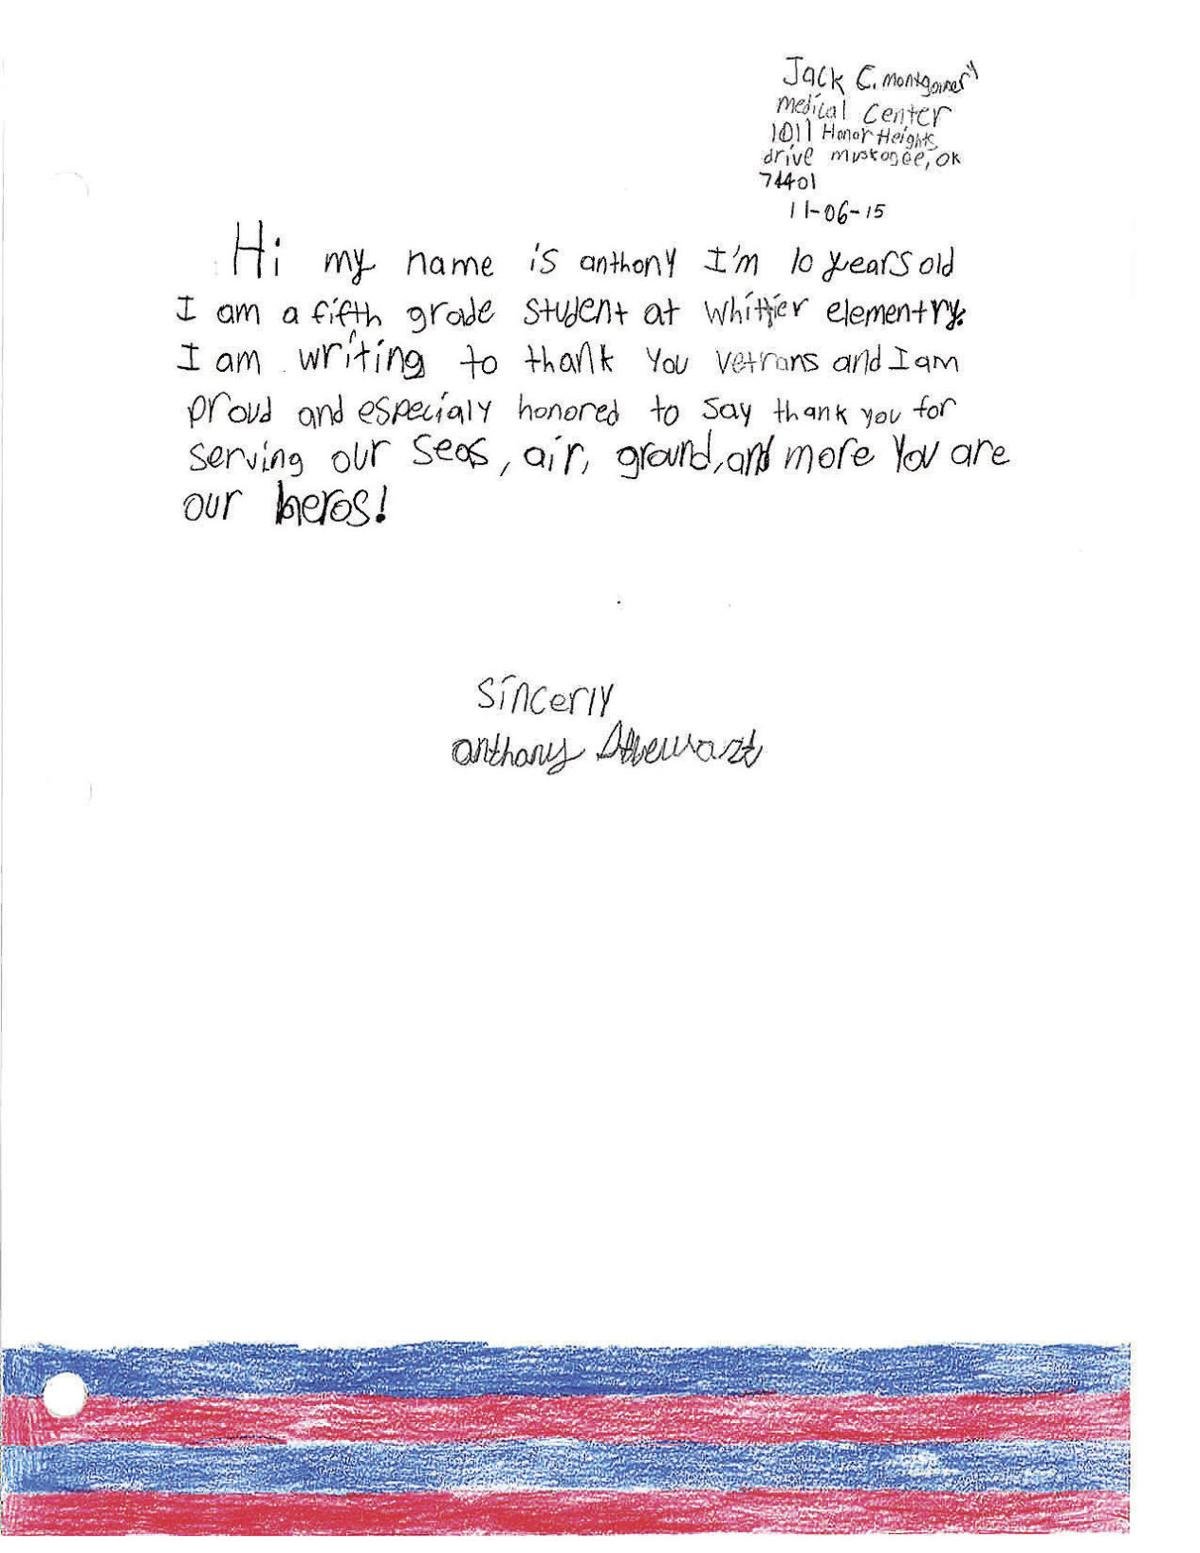 Jack C. montgomery
medical center
1011 Honor Heights
drive muskogee, OK
74401
11-06-15
Hi my name is anthony I'm 10 years old
I am a fifth grade student at whittier elementry.
I am writing to thank you vetrans and I am
proud and especialy honored to say thank you for
serving our seas, air, ground, and more You are
our heros!
sincerly
anthony